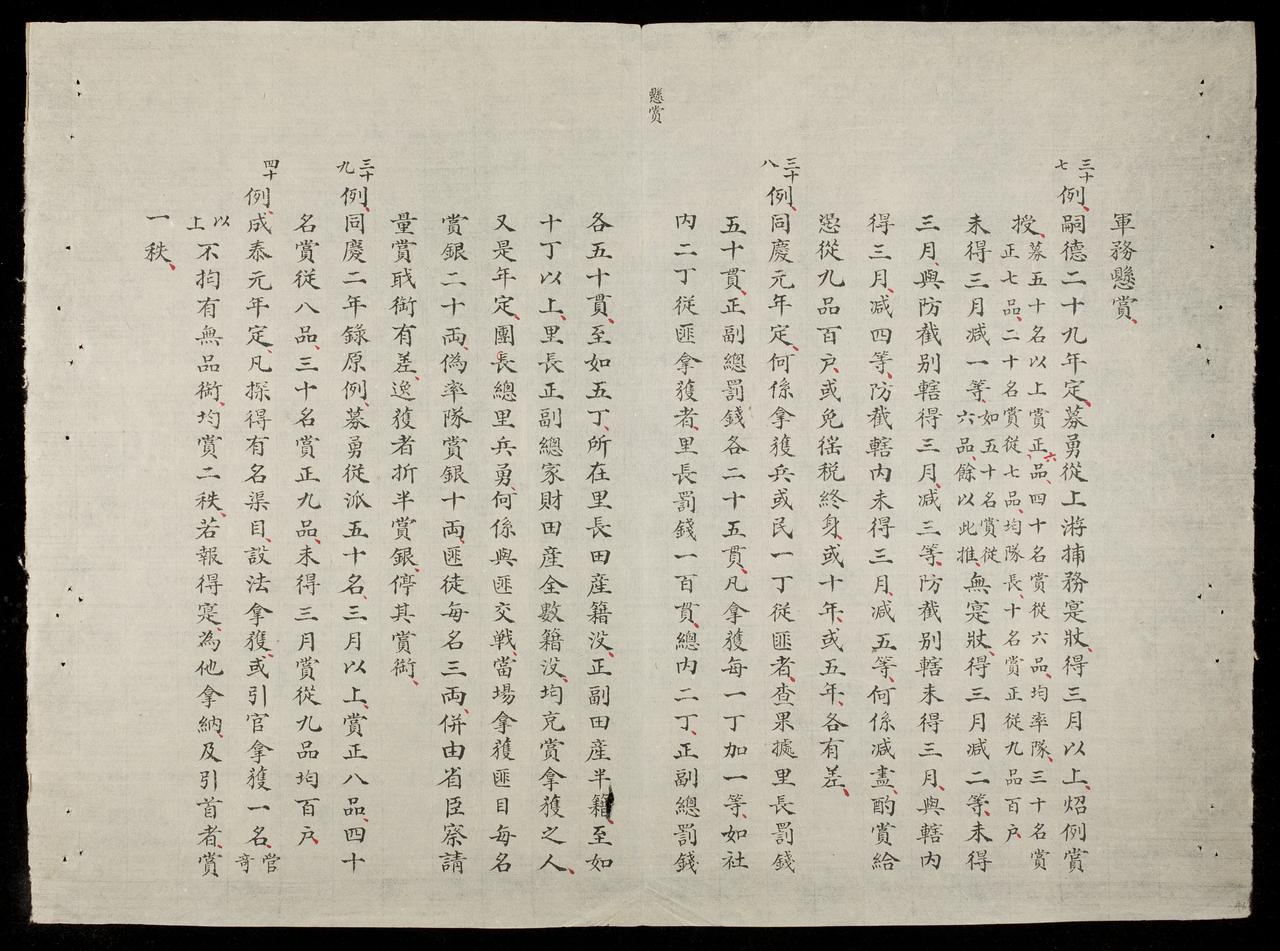 懸賞
軍務懸賞、
三十七例、嗣德二十九年定、募勇從上游捕務寔狀、得三月以上、炤例賞
授、募五十名以上賞正六品、四十名賞從六品、均率隊、三十名賞
正七品、二十名賞從七品、均隊長、十名賞正從九品百户、
未得三月減一等、如五十名賞從
六品、餘以此推、無寔狀、得三月減二等、未得
三月、與防截别轄得三月、减三等、防截别轄未得三月、與轄内
得三月、减四等、防截轄内未得三月、减五等、何係减盡、酌賞給
憑從九品百户、或免徭税終身、或十年、或五年、各有差、
三十八例、同慶元年定、何係拿獲兵或民一丁從匪者、查果據里長罰錢
五十貫、正副總罰錢各二十五貫、凡拿獲每一丁加一等、如社
内二丁從匪拿獲者、里長罰錢一百貫、總内二丁、正副總罰錢
各五十貫、至如五丁、所在里長田産籍没、正副田産半籍、至如
十丁以上、里長正副總家財田産全數籍没、均充賞拿獲之人、
又是年定、團長總里兵勇、何係與匪交戰、當塲拿獲匪目每名
賞銀二十両、偽率隊賞銀十両、匪徒每名三両、併由省臣察請
量賞戢銜有差、逸獲者折半賞銀、停其賞銜、
三十九例、同慶二年錄原例、募勇從派五十名、三月以上、賞正八品、四十
名賞從八品、三十名賞正九品、未得三月賞從九品均百户、
四十例、成泰元年定、凡探得有名渠目、設法拿獲、或引官拿獲一名、官竒
以上不拘有無品銜、均賞二秩、若報得寔、為他拿納、及引首者、賞
一秩、